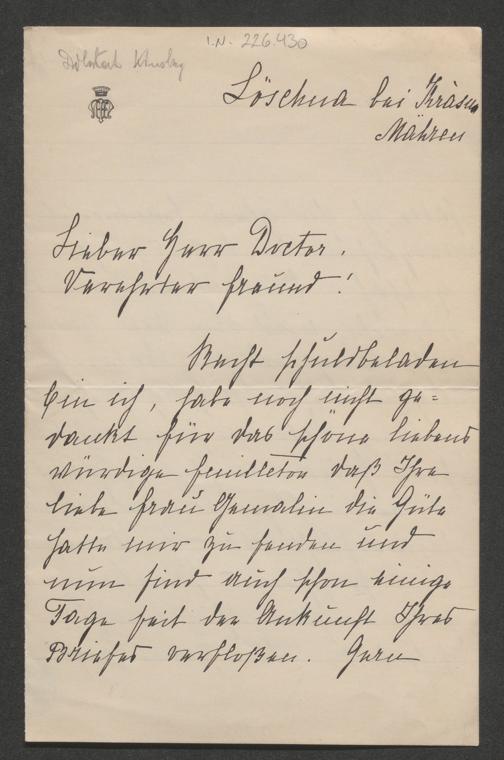 I.N. 226.430
Löschna bei Krásna
Mähren
Lieber Herr Doctor.
Verehrter Freund!
Recht schuldbeladen
bin ich, habe noch nicht ge=
dankt für das schöne liebens
würdige Feuilleton daß Ihre
liebe Frau Gemalin die Güte
hatte mir zu senden und
nun sind auch schon einige
Tage seit der Ankunft Ihres
Briefes verfloßen. Gern